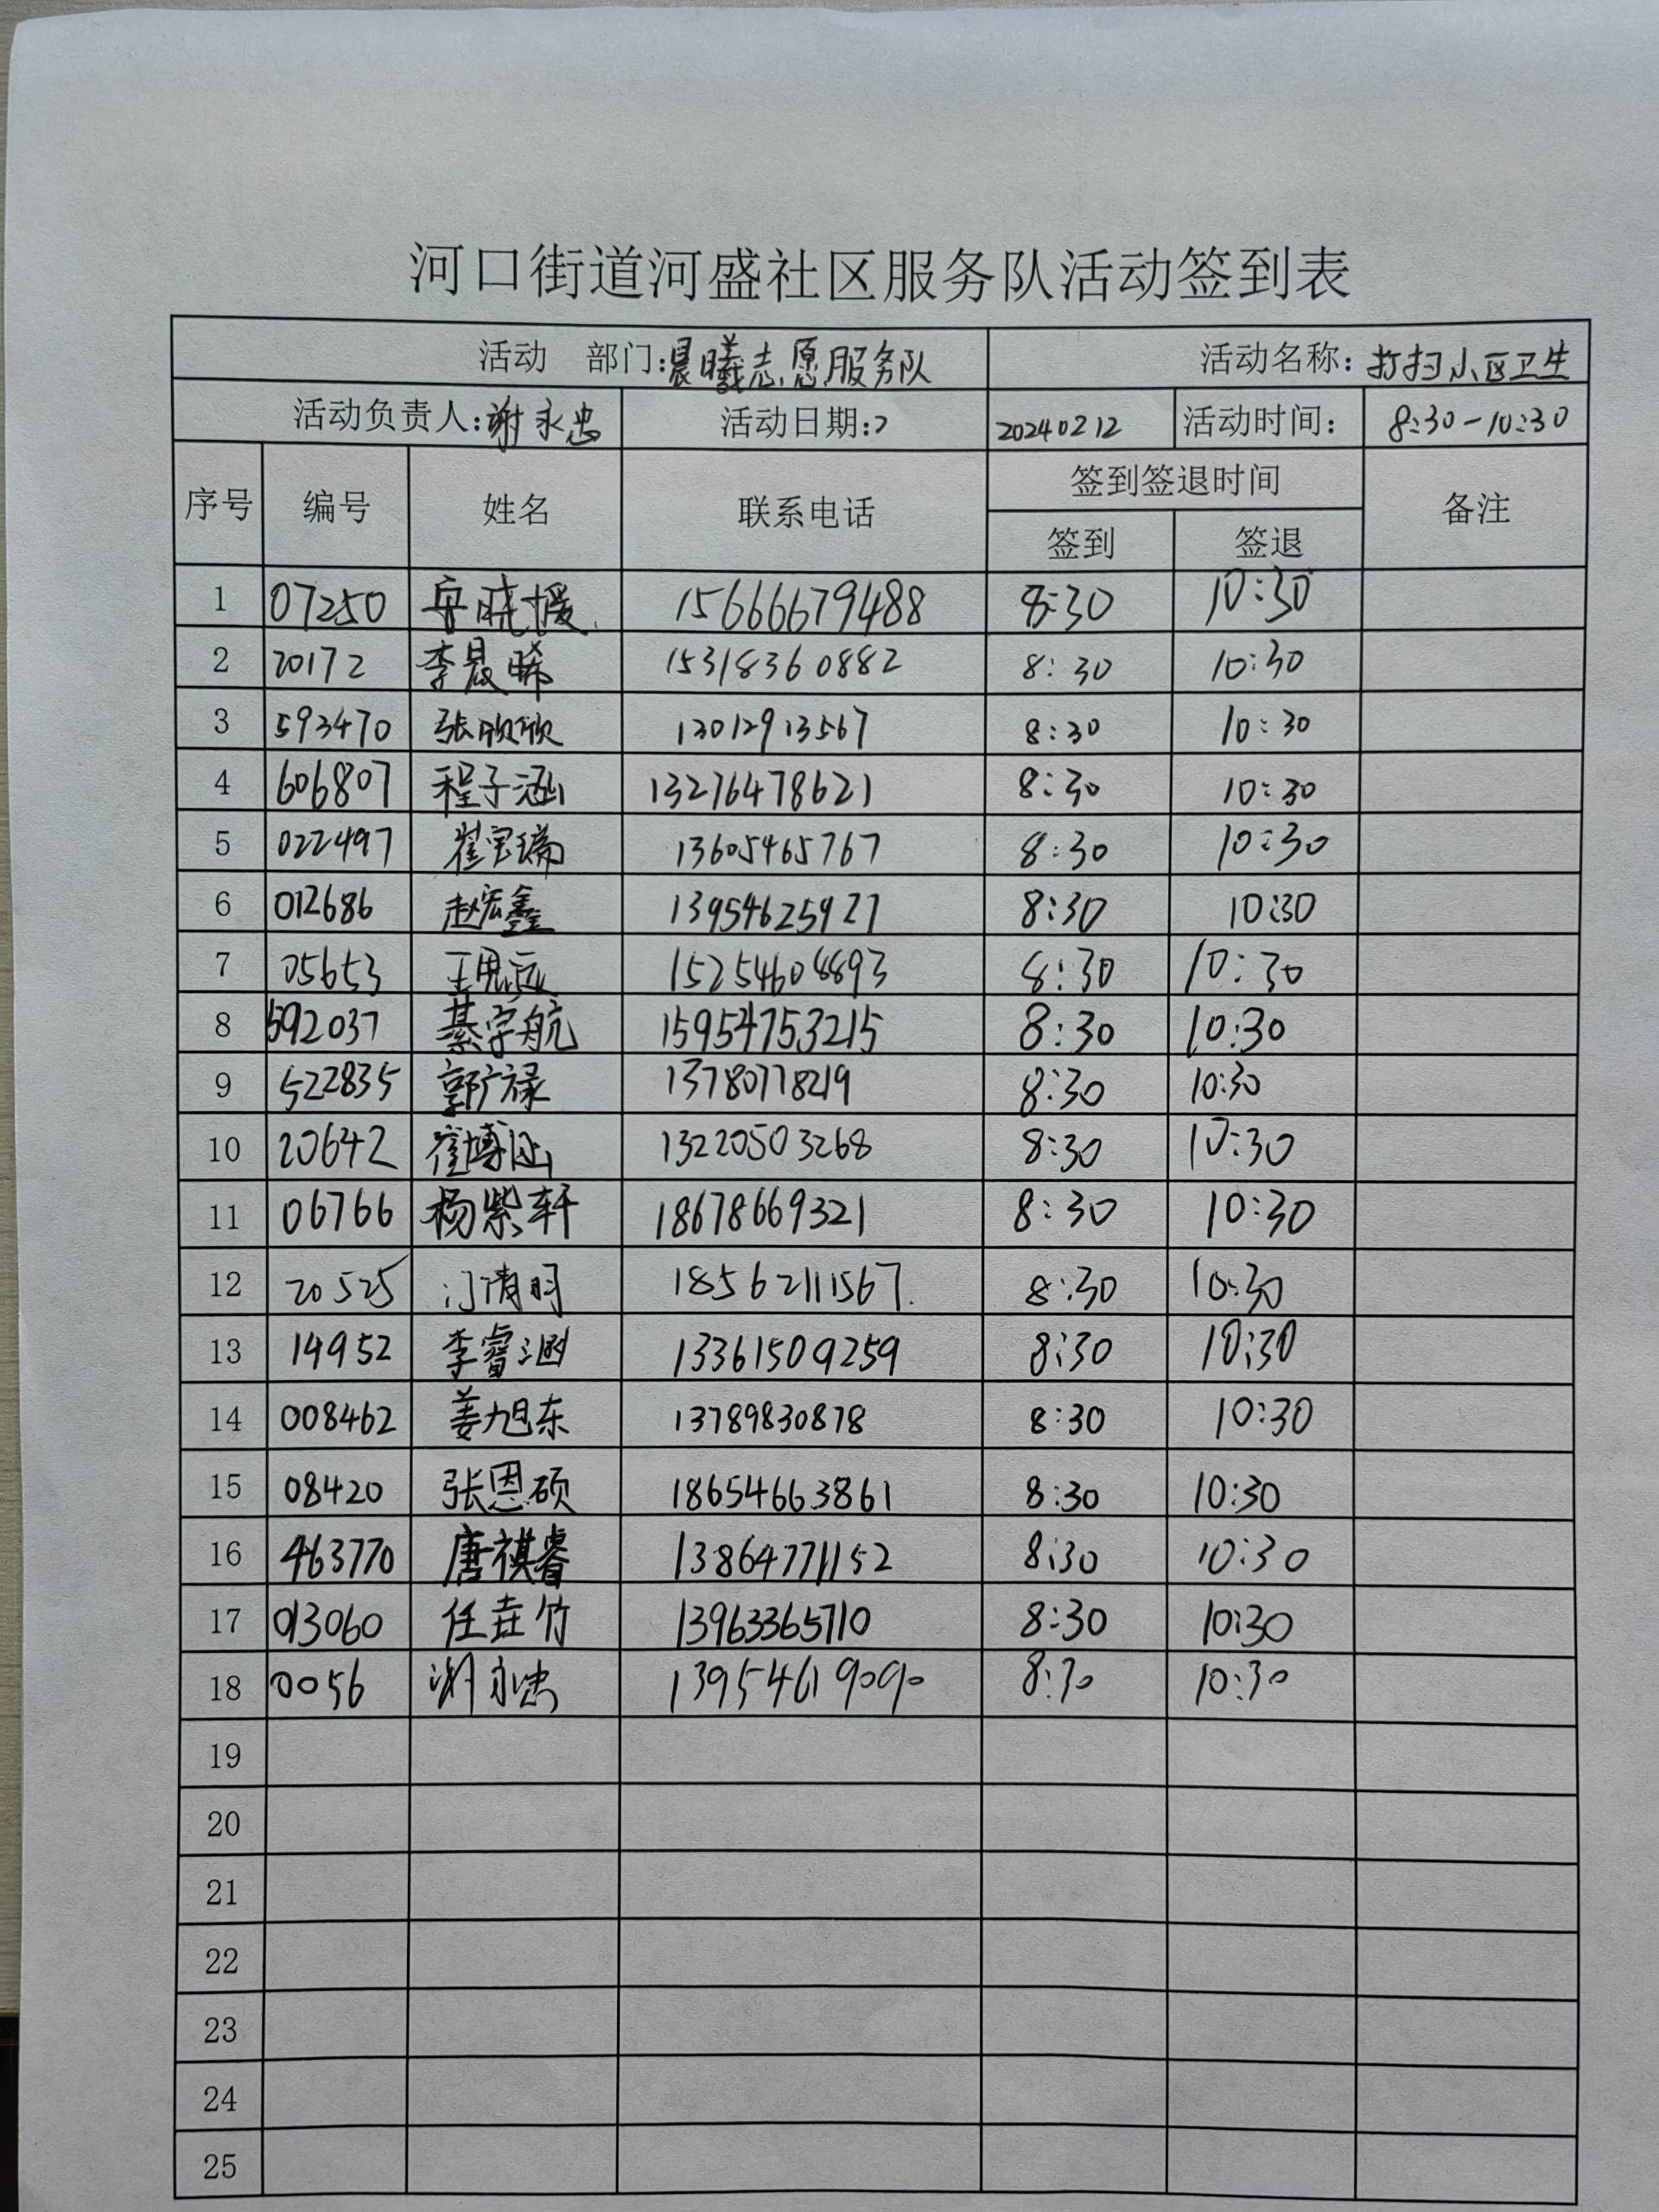 河口街道河盛社区服务队活动签到表
活动 部门:晨曦志愿服务队 活动名称: 打扫小区卫生
活动负责人:谢永忠 活动日期:2 20240212 活动时间: 8:30-10:30
序号 编号 姓名 联系电话 签到签退时间 备注
签到 签退
1 07250 晓媛 15666679488 8:30 10:30
2 20172 李晨晞 15318360882 8:30 10:30
3 593470 张欣欣 13012913567 8:30 10:30
4 606807 程子涵 13276478621 8:30 10:30
5 022497 崔宝瑞 13605465767 8:30 10:30
6 012686 赵宏鑫 13954625927 8:30 10:30
7 05653 王思远 15254608893 8:30 10:30
8 592037 綦宇航 15954753215 8:30 10:30
9 522835 郭广禄 13780778219 8:30 10:30
10 20642 崔博涵 13220503268 8:30 10:30
11 06766 杨紫轩 18678669321 8:30 10:30
12 20525 门清明 18562111567 8:30 10:30
13 14952 李睿涵 13361509259 8:30 10:30
14 008462 姜旭东 13789830878 8:30 10:30
15 08420 张恩硕 18654663861 8:30 10:30
16 463770 唐祺睿 13864771152 8:30 10:30
17 013060 任垚竹 13963365710 8:30 10:30
18 0056 谢永忠 13954619090 8:30 10:30
19
20
21
22
23
24
25